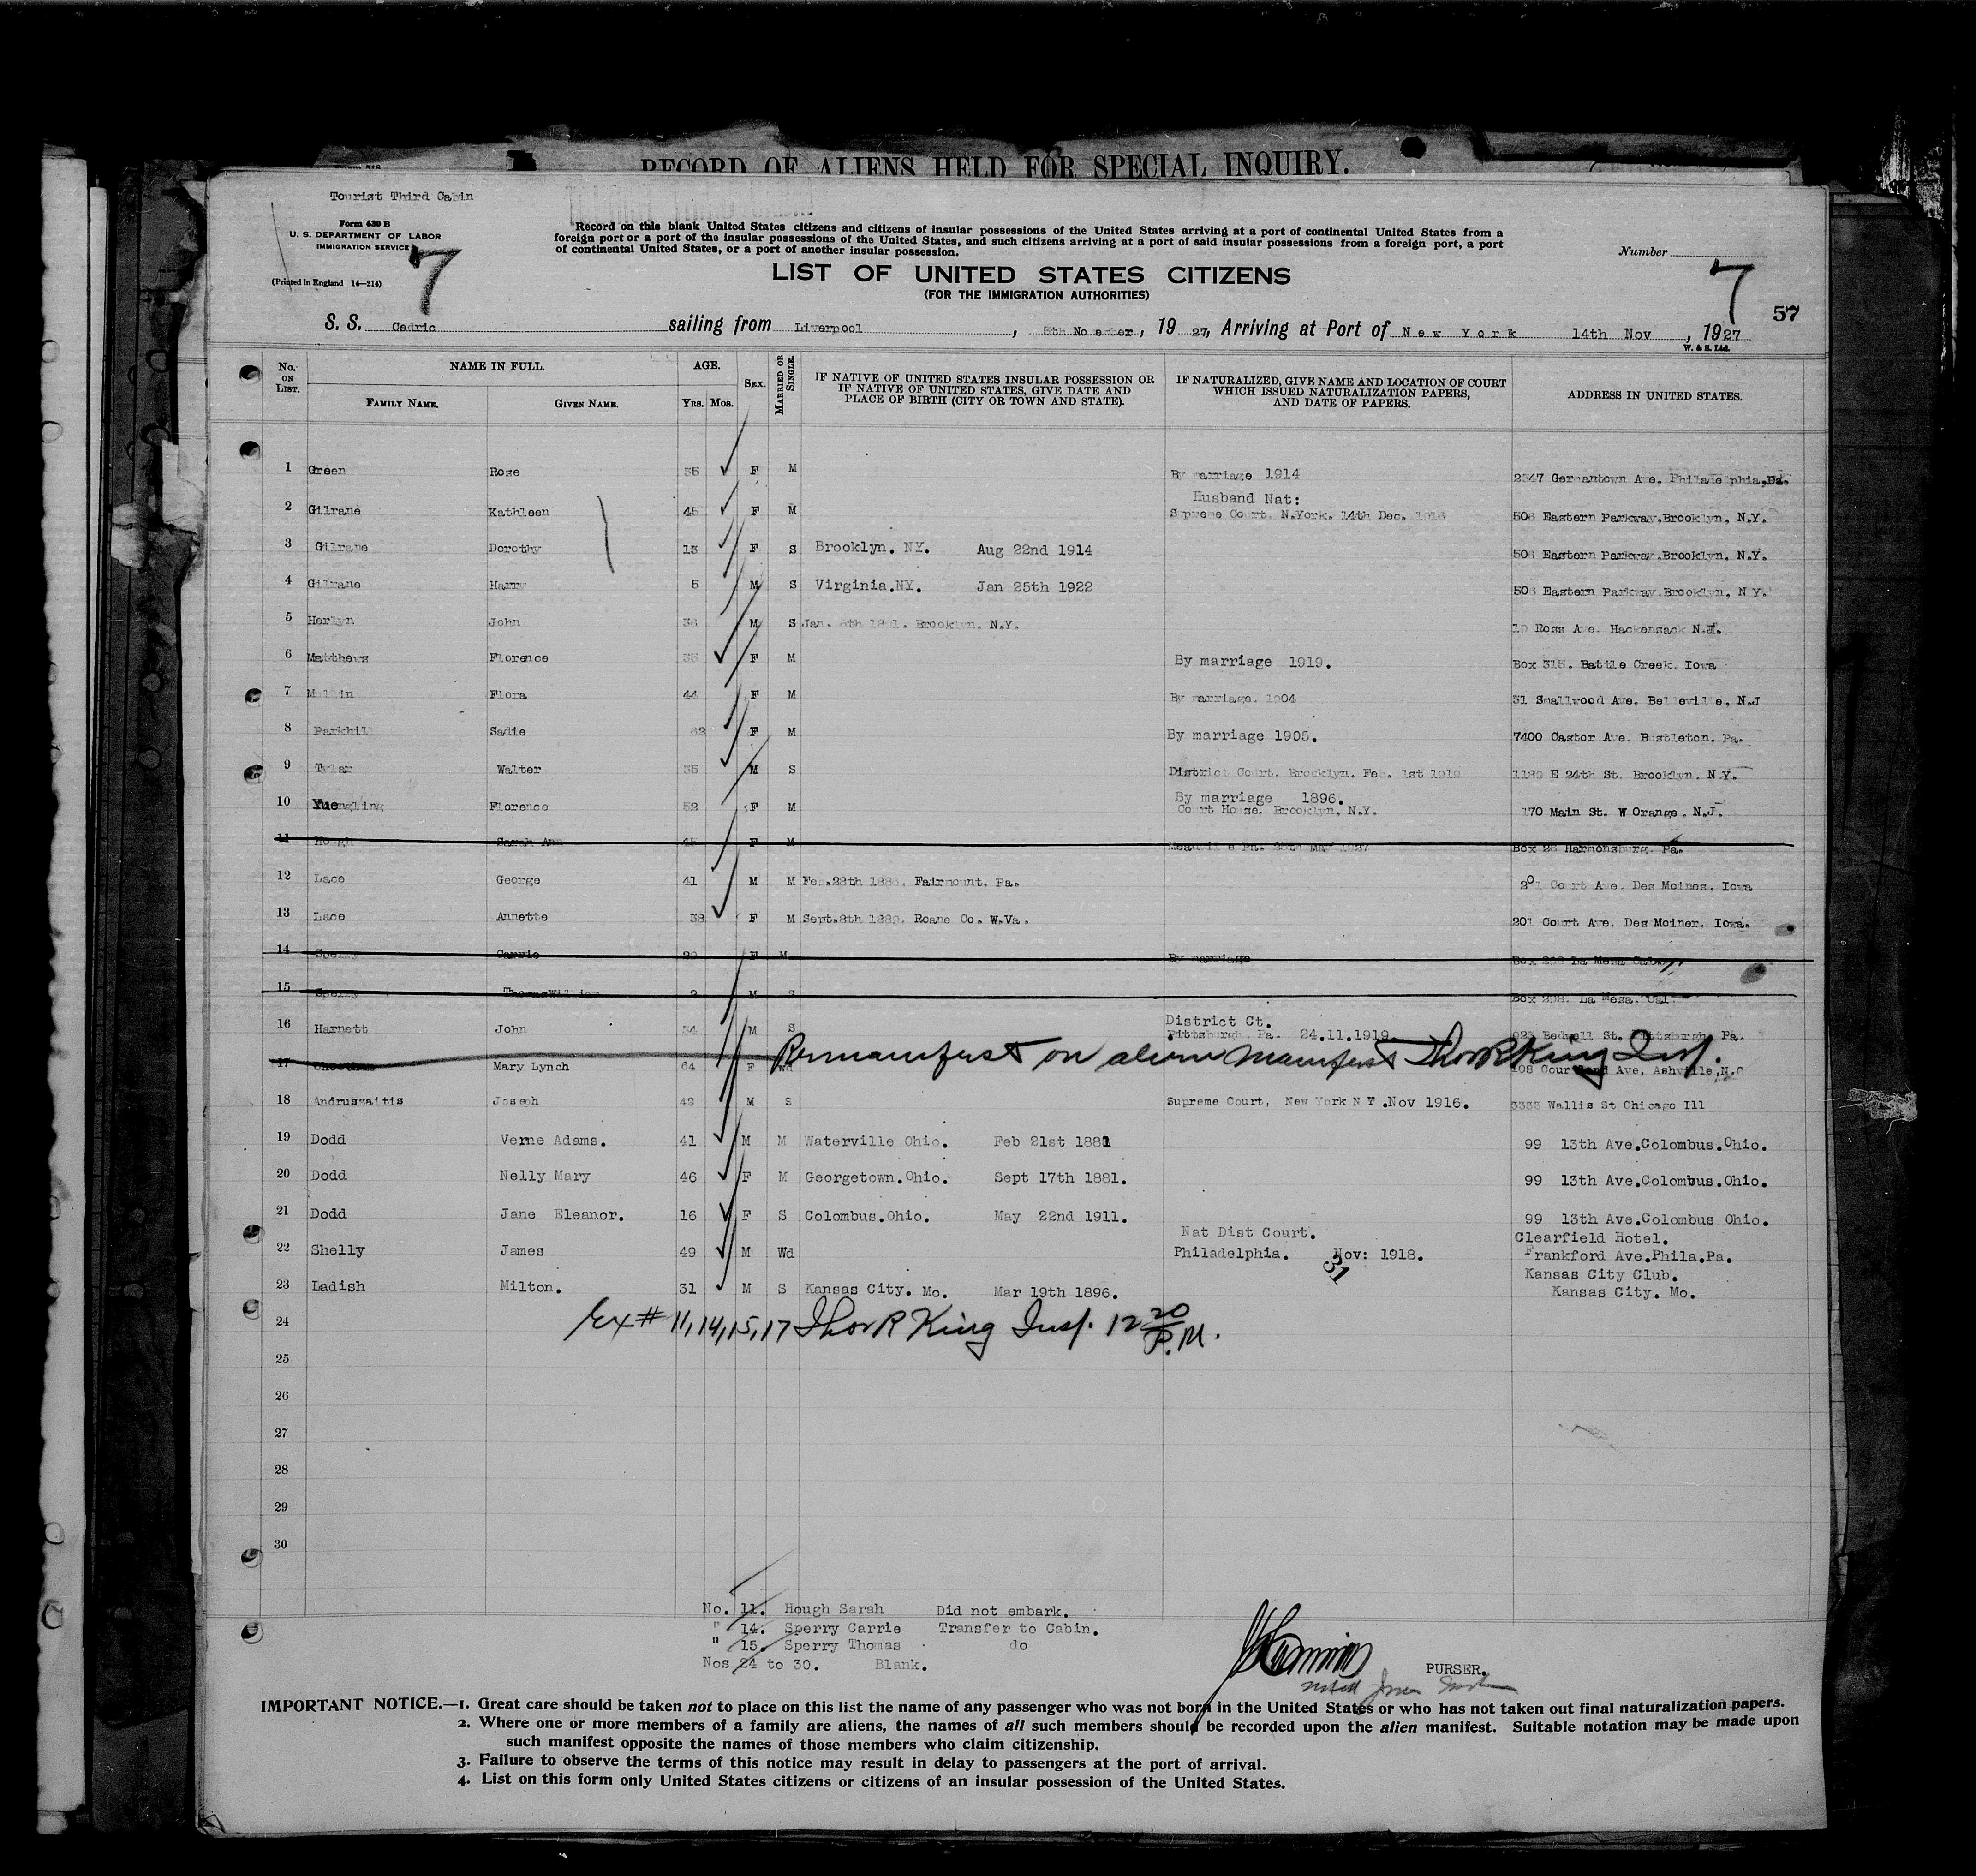 RECORD OF ALIENS HELD FOR SPECIAL INQUIRY.
Tourist Third Cabin
Form 630 B
U. S. DEPARTMENT OF LABOR
IMMIGRATION SERVICE
(Printed in England 14—214)
7
Record on this blank United States citizens and citizens of insular possessions of the United States arriving at a port of continental United States from a
foreign port or a port of the insular possessions of the United States, and such citizens arriving at a port of said insular possessions from a foreign port, a port
of continental United States, or a port of another insular possession.
LIST OF UNITED STATES CITIZENS
(FOR THE IMMIGRATION AUTHORITIES)
Number
7
57
S. S. Cedric sailing from Liverpool, 5th November, 1927, Arriving at Port of New York 14th Nov, 1927
W. & S. Ltd.
No. ON LIST.
NAME IN FULL.
FAMILY NAME.
GIVEN NAME.
AGE.
Yrs. Mos.
SEX.
MARRIED OR SINGLE.
IF NATIVE OF UNITED STATES INSULAR POSSESSION OR
IF NATIVE OF UNITED STATES, GIVE DATE AND
PLACE OF BIRTH (CITY OR TOWN AND STATE).
IF NATURALIZED, GIVE NAME AND LOCATION OF COURT
WHICH ISSUED NATURALIZATION PAPERS,
AND DATE OF PAPERS.
ADDRESS IN UNITED STATES.
1 Green Rose 35 F M By marriage 1914 2547 Germantown Ave. Philadelphia,Pa.
Husband Nat:
2 Gilrane Kathleen 45 F M Supreme Court. N.York. 14th Dec. 1916 506 Eastern Parkway.Brooklyn, N.Y.
3 Gilrane Dorothy 13 F S Brooklyn. NY. Aug 22nd 1914 506 Eastern Parkway.Brooklyn. N.Y.
4 Gilrane Harry 5 M S Virginia.NY. Jan 25th 1922 506 Eastern Parkway.Brooklyn, N Y.
5 Herlyn John 36 M S Jan. 6th 1891. Brooklyn. N.Y. Ross Ave. Hackensack N.J.
6 Matthews Florence 35 F M By marriage 1919. Box 315. Battle Creek. Iowa
7 Flora 44 F M By marriage. 1904 31 Smallwood Ave. Belleville, N.J
8 Parkhill Sadie 62 F M By marriage 1905. 7400 Castor Ave. Bustleton. Pa.
9 Tylar Walter 35 M S District Court. Brooklyn. Feb. 1st 1919 1189 E 24th St. Brooklyn. N.Y.
10 Yuengling Florence 52 F M By marriage 1896.
Court House. Brooklyn. N.Y. 170 Main St. W Orange. N.J.
11 Hough Sarah Ann 45 F M Meadville Pa. May 1927 Box 26 Harmonsburg. Pa.
12 Lace George 41 M M Feb.28th 1886. Fairmount. Pa. 201 Court Ave. Des Moines. Iowa
13 Lace Annette 38 F M Sept.8th 1889. Roane Co. W.Va. 201 Court Ave. Des Moiner. Iowa.
14 Sperry Carrie F M By marriage Box 298 La Mesa
15 Sperry Thomas William 2 M S Box 298. La Mesa. Cal.
District Ct.
16 Harnett John 34 M S Pittsburgh. Pa. 24.11.1919 Bedwell St. Pittsburgh. Pa.
Remanifest on alien manifest Thor R King Insp.
17 Cheetham Mary Lynch 64 F Wd 108 Courtland Ave. Ashville,N.C
18 Andruszaitis Joseph 49 M S Supreme Court, New York N Y .Nov 1916. 3333 Wallis St Chicago Ill
19 Dodd Verne Adams. 41 M M Waterville Ohio. Feb 21st 1881 99 13th Ave.Colombus.Ohio.
20 Dodd Nelly Mary 46 F M Georgetown.Ohio. Sept 17th 1881. 99 13th Ave.Colombus.Ohio.
21 Dodd Jane Eleanor. 16 F S Colombus.Ohio. May 22nd 1911. 99 13th Ave.Colombus Ohio.
Nat Dist Court. Clearfield Hotel.
22 Shelly James 49 M Wd Philadelphia. Nov: 1918. Frankford Ave.Phila.Pa.
31
Kansas City Club.
23 Ladish Milton. 31 M S Kansas City. Mo. Mar 19th 1896. Kansas City. Mo.
24 Ex # 11,14,15,17 Thor R King Insp. 12 20 P.M.
25
26
27
28
29
30
No. 11. Hough Sarah Did not embark.
" 14. Sperry Carrie Transfer to Cabin.
" 15. Sperry Thomas do
Nos 24 to 30. Blank.
PURSER.
IMPORTANT NOTICE.—1. Great care should be taken not to place on this list the name of any passenger who was not born in the United States or who has not taken out final naturalization papers.
2. Where one or more members of a family are aliens, the names of all such members should be recorded upon the alien manifest. Suitable notation may be made upon
such manifest opposite the names of those members who claim citizenship.
3. Failure to observe the terms of this notice may result in delay to passengers at the port of arrival.
4. List on this form only United States citizens or citizens of an insular possession of the United States.